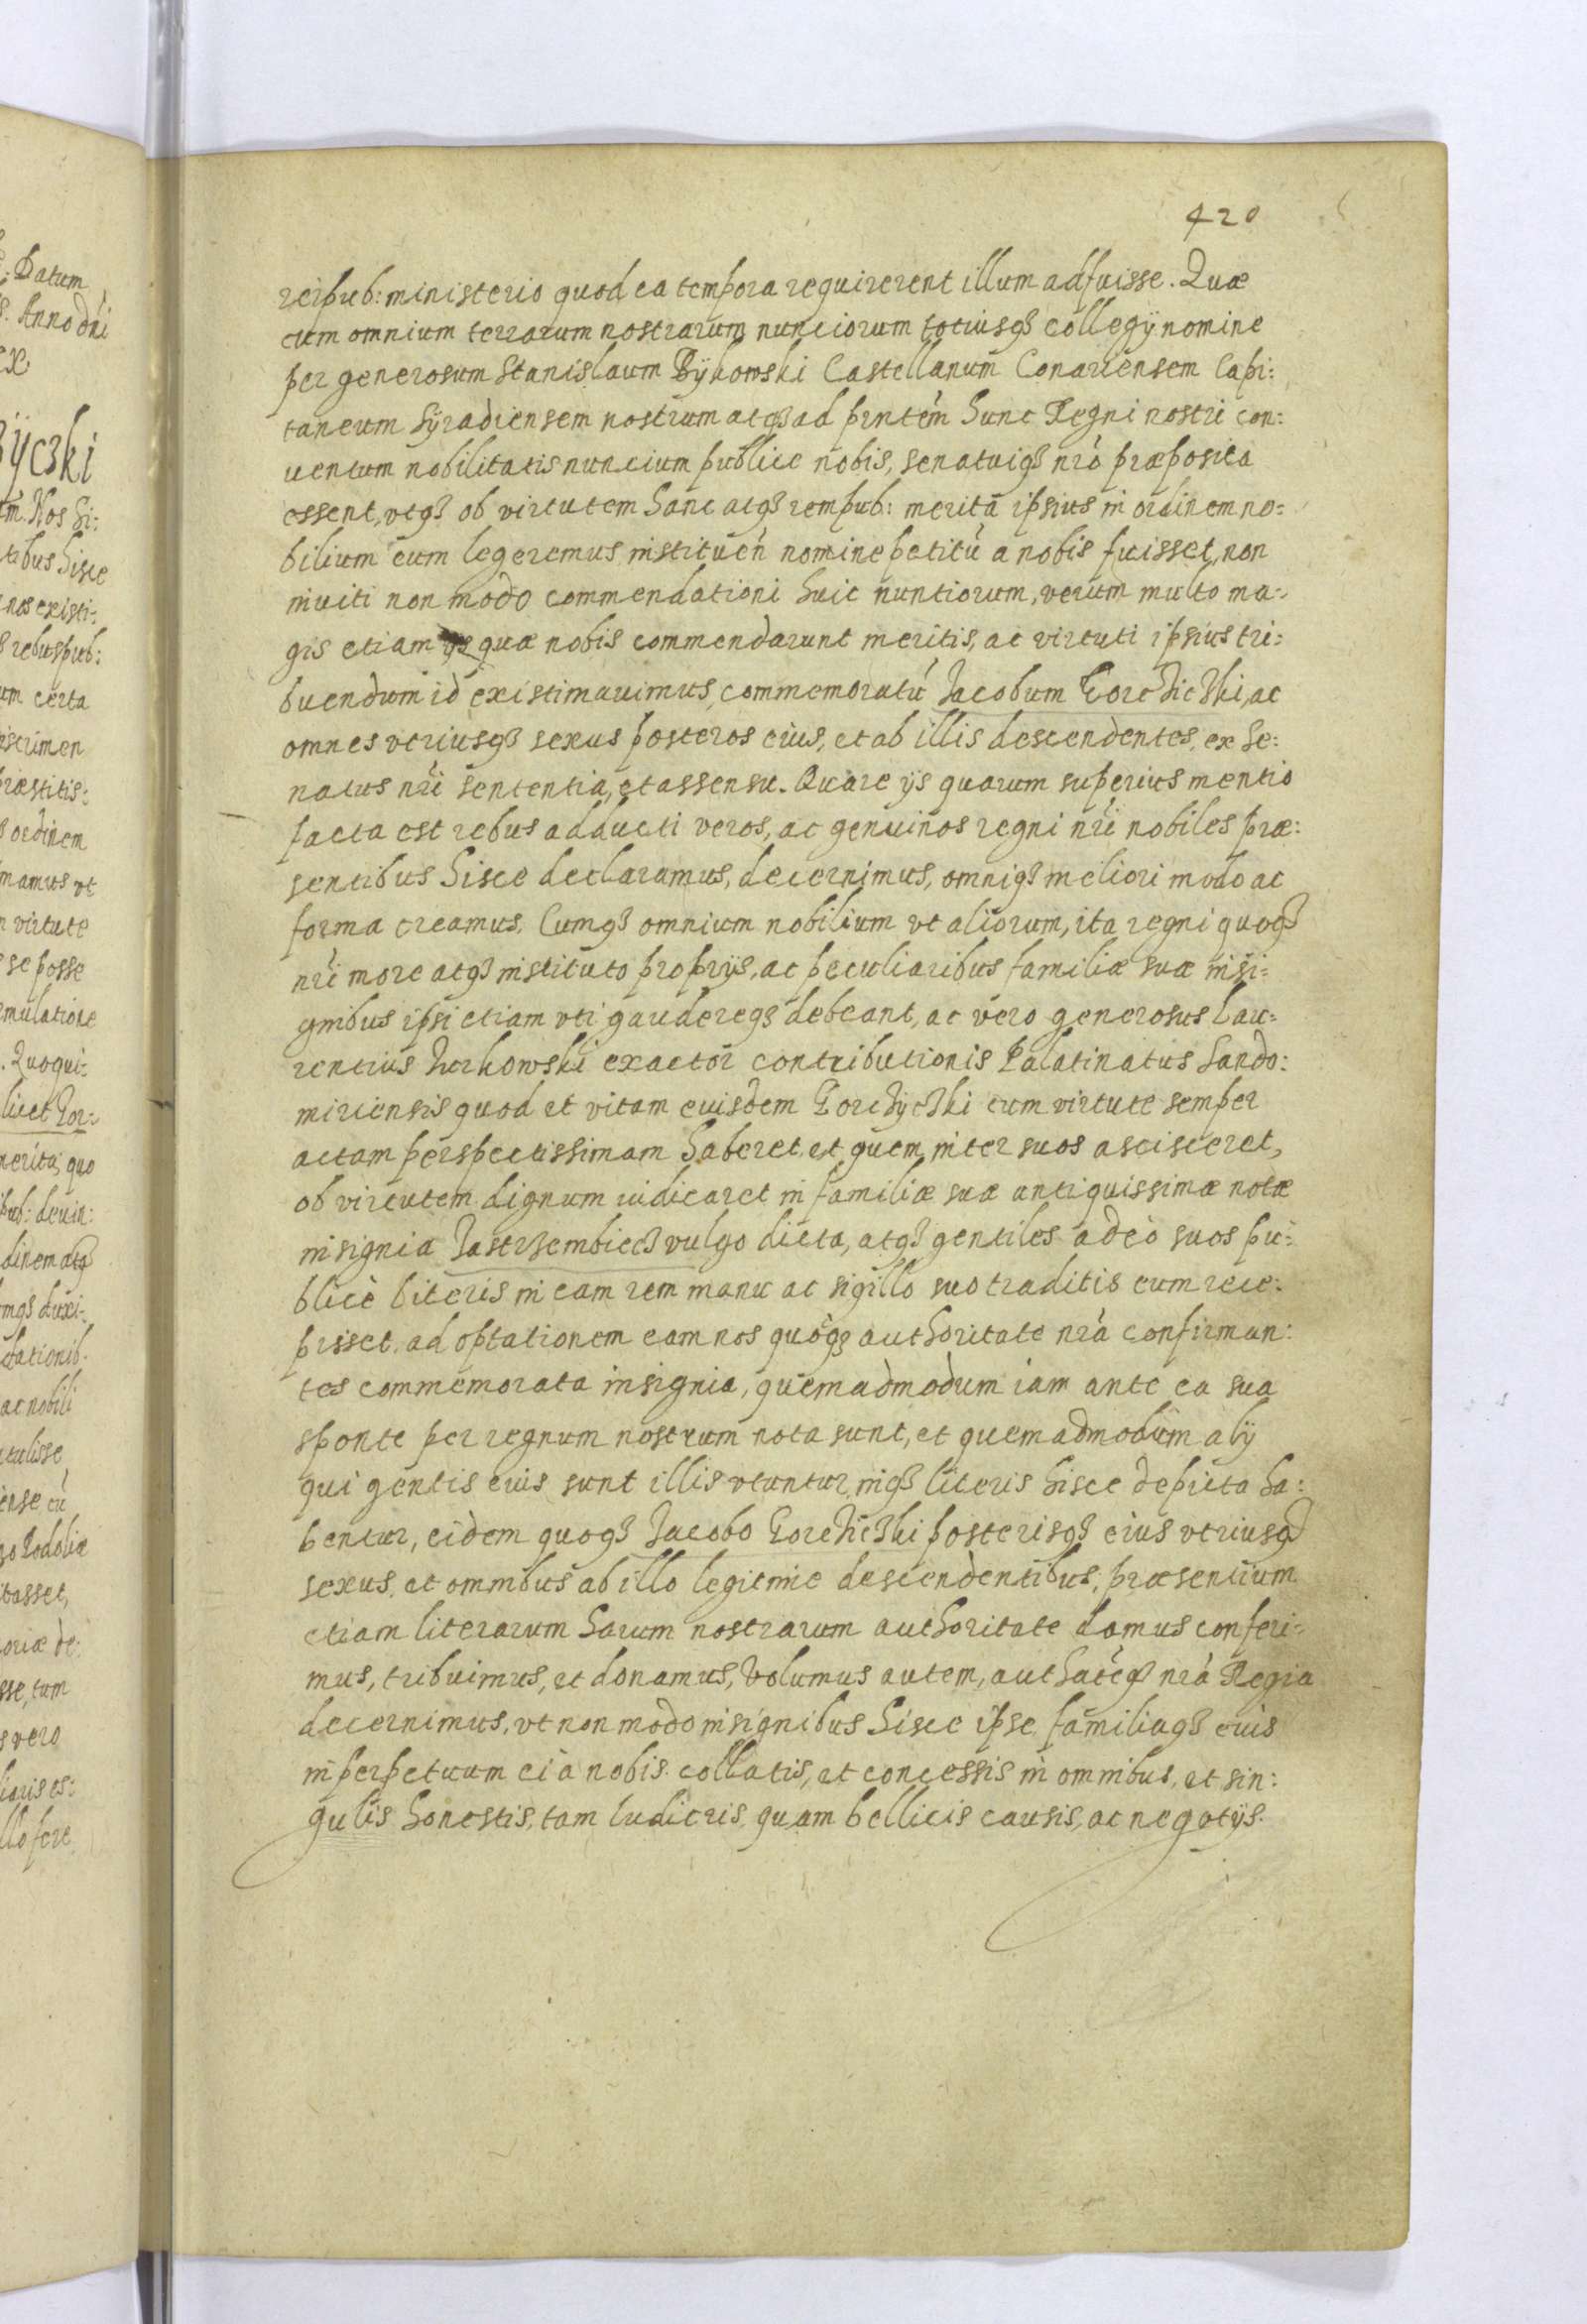 420
reipub: ministerio quod ea tempora requirerent illum adfuisse. Quæ
cum omnium terrarum nostrarum nunciorum totiusq3 collegÿ nomine
per generosum Stanislaum Bÿkowski Castellanum Conariensem Capi:
taneum Sÿradiensem nostrum atq3 ad prntem hunc Regni nostri con:
uentum nobilitatis nuncium publice nobis, senatuiq3 nrō præposita
essent, vtq3 ob virtutem hanc atq3 rempub: merita ipsius in ordinem no:
bilium eum legeremus, instituen nomine petitū a nobis fuisset, non
inuiti non modo commendationi huic nuntiorum, verum multo ma:
gis etiam quæ nobis commendarunt meritis, ac virtuti ipsius tri:
buendum id existimauimus, commemoratū Jacobum ac
omnes vtriusq3 sexus posteros eius, et ab illis descendentes, ex Se:
natus nrī sententia, et assensu. Quare ÿs quarum superius mentio
facta est rebus adducti veros, ac genuinos regni nrī nobiles præ:
sentibus hisce declaramus, decernimus, omniq3 meliori modo ac
forma creamus. Cumq3 omnium nobilium vt aliorum, ita regni quoq3
nrī more atq3 instituto proprÿs, ac peculiaribus familiæ suæ insi:
gnibus ipsi etiam vti gaudereq3 debeant, ac vero generosus Lau:
rentius exactor contributionis Palatinatus Sando:
miriensis quod et vitam euisdem cum virtute semper
actam perspectissimam haberet, et quem inter suos ascisceret,
ob virtutem dignum iudicaret in familiæ suæ antiquissimæ notæ
insignia Jastrzembiecz vulgo dicta, atq3 gentiles adeò suos pu:
blicè literis in eam rem manu ac sigillo suo traditis eum rece:
pisset, adoptationem eam nos quoq3 authoritate nrā confirman:
tes commemorata insignia, quemadmodum iam ante ea sua
sponte per regnum nostrum nota sunt, et quemadmodum alÿ
qui gentis eius sunt illis vtuntur, inq3 literis hisce depicta ha:
bentur, eidem quoq3 Jacobo posterisq3 eius vtriusq3
sexus, et omnibus ab illo legitime descendentibus, præsentium
etiam literarum harum nostrarum authoritate damus conferi:
mus, tribuimus, et donamus, Volumus autem, authatēq3 nrā Regia
decernimus, vt non modo insignibus hisce ipse familiaq3 eius
in perpetuum ei à nobis collatis, et concessis in omnibus, et sin:
gulis honestis, tam ludicris, quam bellicis causis, ac negotÿs.